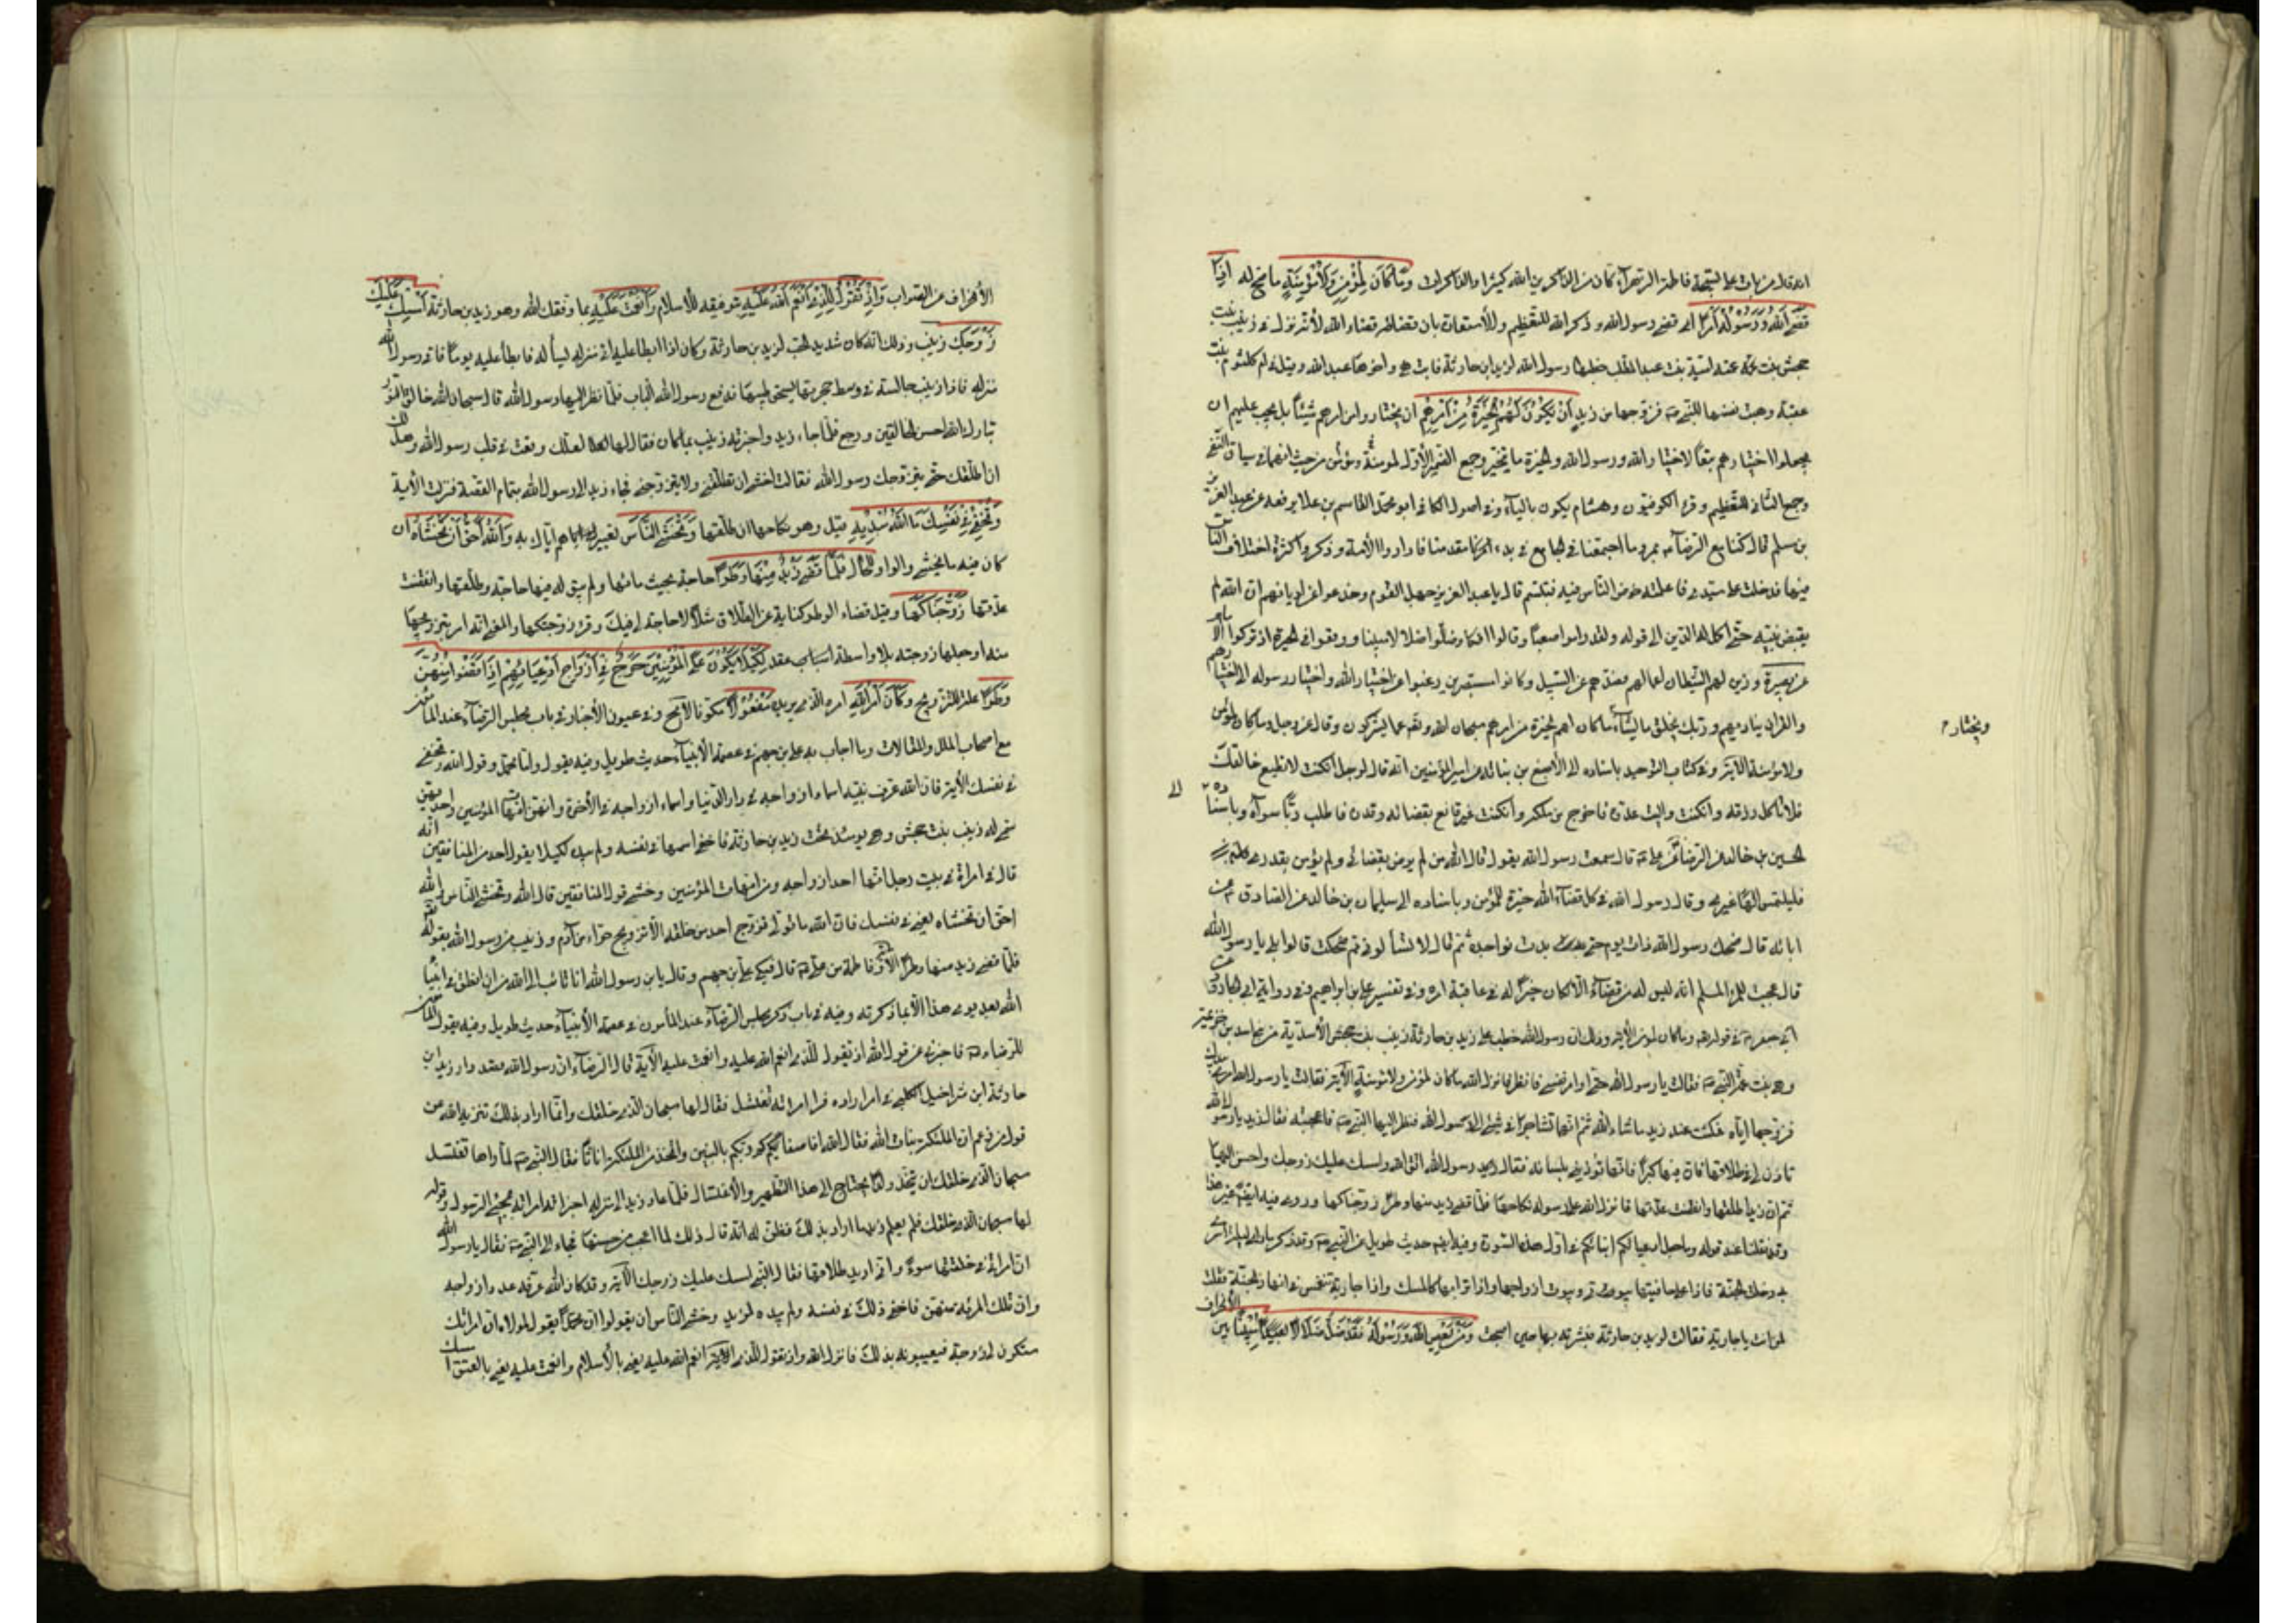 انه قال من بات على تسبيح فاطمة الزهراء كان من الذاكرين الله كثيرا والذاكرات وَمَا كَانَ لِمُؤْمِنٍ وَلَا مُؤْمِنَةٍ ما صح له إِذَا
قَضَى اللهُ وَرَسُولُهُ أَمْرًا اى قضى رسول الله وذكر الله للتعظيم وللأشعار بان قضائه قضاء الله لأنه نزل فى زينب بنت
جحش بنت عمته اميمة بنت عبد المطلب خطبها رسول الله لزيد ابن حارثة فابت هى واخوها عبد الله وقيل فى ام كلثوم بنت
عقبة وهبت نفسها للنبى ص فزوجها من زيد أَنْ يَكُونَ لَهُمُ الْخِيَرَةُ مِنْ أَمْرِهِمْ ان يختاروا من امرهم شيئا بل يجب عليهم ان
يجعلوا اختيارهم تبعا لاختيار الله ورسول الله والخيرة ما يتخير وجمع الضمير الأول لعموم مؤمن ومؤمنة من حيث انهما فى سياق النفى
وجمع الثانى للتعظيم وقرء الكوفيون وهشام يكون بالياء وفى اصول الكافى ابو محمد القاسم بن علا رفعه عن عبد العزيز بن
بن مسلم قال كنا مع الرضا ع بمرو فاجتمعنا فى الجامع فى بدء مقدمنا فاداروا امر الأمامة وذكروا كثرة اختلاف الناس
فيها فدخلت على سيدى فاعلمته خوض الناس فيه فتبسم ثم قال يا عبد العزيز جهل القوم وخدعوا عن اديانهم ان الله لم
يقبض نبيه حتى اكمل له الدين الى قوله ولقد راموا صعبا وقالوا افكا وضلوا ضلالا بعيدا ووقعوا فى الحيرة اذ تركوا الأمام
عن بصيرة وزين لهم الشيطان اعمالهم فصدهم عن السبيل وكانوا مستبصرين رغبوا عن اختيار الله واختيار رسوله الى اختيارهم
والقران يناديهم وربك يخلق ما يشاء ويختار ما كان لهم الخيرة من امرهم سبحان الله وتعالى عما يشركون وقال عز وجل وما كان لمؤمن
ولا مؤمنة الآية وفى كتاب التوحيد باسناده الى الأصبغ بن نباتة عن امير المؤمنين انه قال لرجل ان كنت لا تطيع خالقك
فلا تأكل رزقه وان كنت واليت عدوه فاخرج من ملكه وان كنت غير قانع بقضائه وقدره فاطلب ربا سواه وباسناده الى
الحسين بن خالد عن الرضا عن على ع قال سمعت رسول الله يقول قال الله من لم يرض بقضائى ولم يؤمن بقدرى
فليلتمس الها غيرى وقال رسول الله فى كل قضاء الله خيرة للمؤمن وباسناده الى سليمان بن خالد عن الصادق ع عن
ابائه قال ضحك رسول الله ذات يوم حتى بدت نواجذه ثم قال الا تسألونى مم ضحكت قالوا بلى يا رسول الله
قال عجبت للمرء المسلم انه ليس له من قضاء الا كان خيرا له فى عاقبة امره وفى تفسير على بن ابراهيم وفى رواية ابى الجارود عن
ابى جعفر ع فى قوله وما كان لمؤمن الآية وذلك ان رسول الله خطب على زيد بن حارثة زينب بنت جحش الأسدية من بنى اسد بن خزيمة
وهى بنت عمة النبى ص فقالت يا رسول الله حتى اوامر نفسى فانظر فانزل الله ما كان لمؤمن ولا مؤمنة الآية فقالت يا رسول الله امرى بيدك
فزوجها اياه فمكثت عند زيد ما شاء الله ثم انهما تشاجرا فى شىء الى رسول الله فنظر اليها النبى ص فاعجبته فقال زيد يا رسول الله
تأذن لى فى طلاقها فان فيها كبرا فانها تؤذينى بلسانها فقال رسول الله اتق الله وامسك عليك زوجك واحسن اليها
ثم ان زيدا طلقها وانقضت عدتها فانزل الله على رسوله نكاحها فلما قضى زيد منها وطرا زوجناكها وروى فيه ايضا غير هذا
وقد نقلنا عند قوله وما جعل ادعيائكم ابنائكم فى اول هذه السورة وفيه ايضا حديث طويل عن النبى ص وقد ذكر
دخلت الجنة فاذا على حافتيها بيوتى وبيوت ازواجى واذا ترابها كالمسك واذا جارية تنغمس فى انهار الجنة فقلت
لمن انت يا جارية فقالت لزيد بن حارثة فبشرته بها حين اصبحت وَمَنْ يَعْصِ اللهَ وَرَسُولَهُ فَقَدْ ضَلَّ ضَلَالًا مُبِينًا بين الأنحراف
ويختار
الأنحراف عن الصواب وَإِذْ تَقُولُ لِلَّذِى أَنْعَمَ اللهُ عَلَيْهِ بتوفيقه للأسلام وَأَنْعَمْتَ عَلَيْهِ بما وفقك الله وهو زيد بن حارثة أَمْسِكْ عَلَيْكَ
زَوْجَكَ زينب وذلك انه كان شديد الحب لزيد بن حارثة وكان اذا ابطأ عليه اتى منزله ليسأل عنه فابطأ عليه يوما فاتى رسول الله
منزله فاذا زينب جالسة فى وسط حجرتها تسحق طيبها فدفع رسول الله الباب فلما نظر اليها رسول الله قال سبحان الله خالق النور
تبارك الله احسن الخالقين ورجع فلما جاء زيد واخبرته زينب بما كان فقال لها لعلك وقعت فى قلب رسول الله
ان اطلقك حتى يتزوجك رسول الله فقالت اخشى ان تطلقنى ولا يتزوجنى فجاء زيد الى رسول الله بتمام القصة فنزلت الأية
وَتُخْفِى فِى نَفْسِكَ مَا اللهُ مُبْدِيهِ قيل وهو نكاحها ان طلقها وَتَخْشَى النَّاسَ تعييرهم اياك به وَاللهُ أَحَقُّ أَنْ تَخْشَاهُ ان
كان فيه ما يخشى والواو للحال فَلَمَّا قَضَى زَيْدٌ مِنْهَا وَطَرًا حاجة بحيث ملها ولم يبق له فيها حاجة وطلقها وانقضت
عدتها زَوَّجْنَاكَهَا وقيل قضاء الوطر كناية عن الطلاق مثل لا حاجة لى فيك وقرء زوجتكها والمعنى انه امر بتزويجها
منه او جعلها زوجته بلا واسطة عقد لِكَيْلَا يَكُونَ عَلَى الْمُؤْمِنِينَ حَرَجٌ فِى أَزْوَاجِ أَدْعِيَائِهِمْ إِذَا قَضَوْا مِنْهُنَّ
وَطَرًا علة للتزويج وَكَانَ أَمْرُ اللهِ امره الذى يريده مَفْعُولًا مكونا لا محالة وفى عيون الأخبار فى باب مجلس الرضا ع عند المأمون
مع اصحاب الملل والمقالات وما اجاب به على بن جهم فى عصمة الأنبياء حديث طويل وفيه يقول واما محمد وقول الله وتخفى
فى نفسك الأية فان الله عرف نبيه اسماء ازواجه فى دار الدنيا واسماء ازواجه فى الأخرة وانهن امهات المؤمنين واحد منهن
سمى له زينب بنت جحش وهى يومئذ تحت زيد بن حارثة فاخفى اسمها فى نفسه ولم يبده لكيلا يقول احد من المنافقين انه
قال فى امرأة فى بيت رجل انها احد ازواجه ومن امهات المؤمنين وخشى قول المنافقين قال الله وتخشى الناس والله
احق ان تخشاه يعنى فى نفسك فان الله ما تولى تزويج احد من خلقه الا تزويج حواء من آدم وزينب من رسول الله بقوله
فلما قضى زيد منها وطرا الأية وفاطمة من على ع قال فبكى على بن جهم وقال يا بن رسول الله انا تائب الى الله من ان انطق فى انبياء
الله بعد يومى هذا الا بما ذكرته وفيه فى باب ذكر مجلس الرضا ع عند المأمون فى عصمة الأنبياء حديث طويل وفيه يقول المأمون
للرضا ع فاخبرنى عن قول الله اذ تقول للذى انعم الله عليه وانعمت عليه الأية قال الرضا ع ان رسول الله قصد دار زيد ابن
حارثة ابن شراحيل الكلبى فى امر اراده فراى امرأته تغتسل فقال لها سبحان الذى خلقك وانما اراد بذلك تنزيه الله عن
قول من زعم ان الملئكة بنات الله فقال الله افاصفاكم ربكم بالبنين واتخذ من الملئكة اناثا فقال النبى ص لما راها تغتسل
سبحان الذى خلقك ان يتخذ ولدا يحتاج الى هذا التطهير والأغتسال فلما عاد زيد الى منزله اخبرته امرأته بمجىء الرسول وقوله
لها سبحان الذى خلقك فلم يعلم زيد ما اراد بذلك فظن انه قال ذلك لما اعجبه من حسنها فجاء الى النبى ص فقال يا رسول الله
ان امرأتى فى خلقها سوء وانى اريد طلاقها فقال النبى امسك عليك زوجك الأية وقد كان الله عرفه عدد ازواجه
وان تلك المرئة منهن فاخفى ذلك فى نفسه ولم يبده لزيد وخشى الناس ان يقولوا ان محمدا يقول لمولاه ان امرأتك
ستكون لى زوجة فيعيبونه بذلك فانزل الله واذ تقول للذى انعم الله عليه يعنى بالأسلام وانعمت عليه يعنى بالعتق امسك